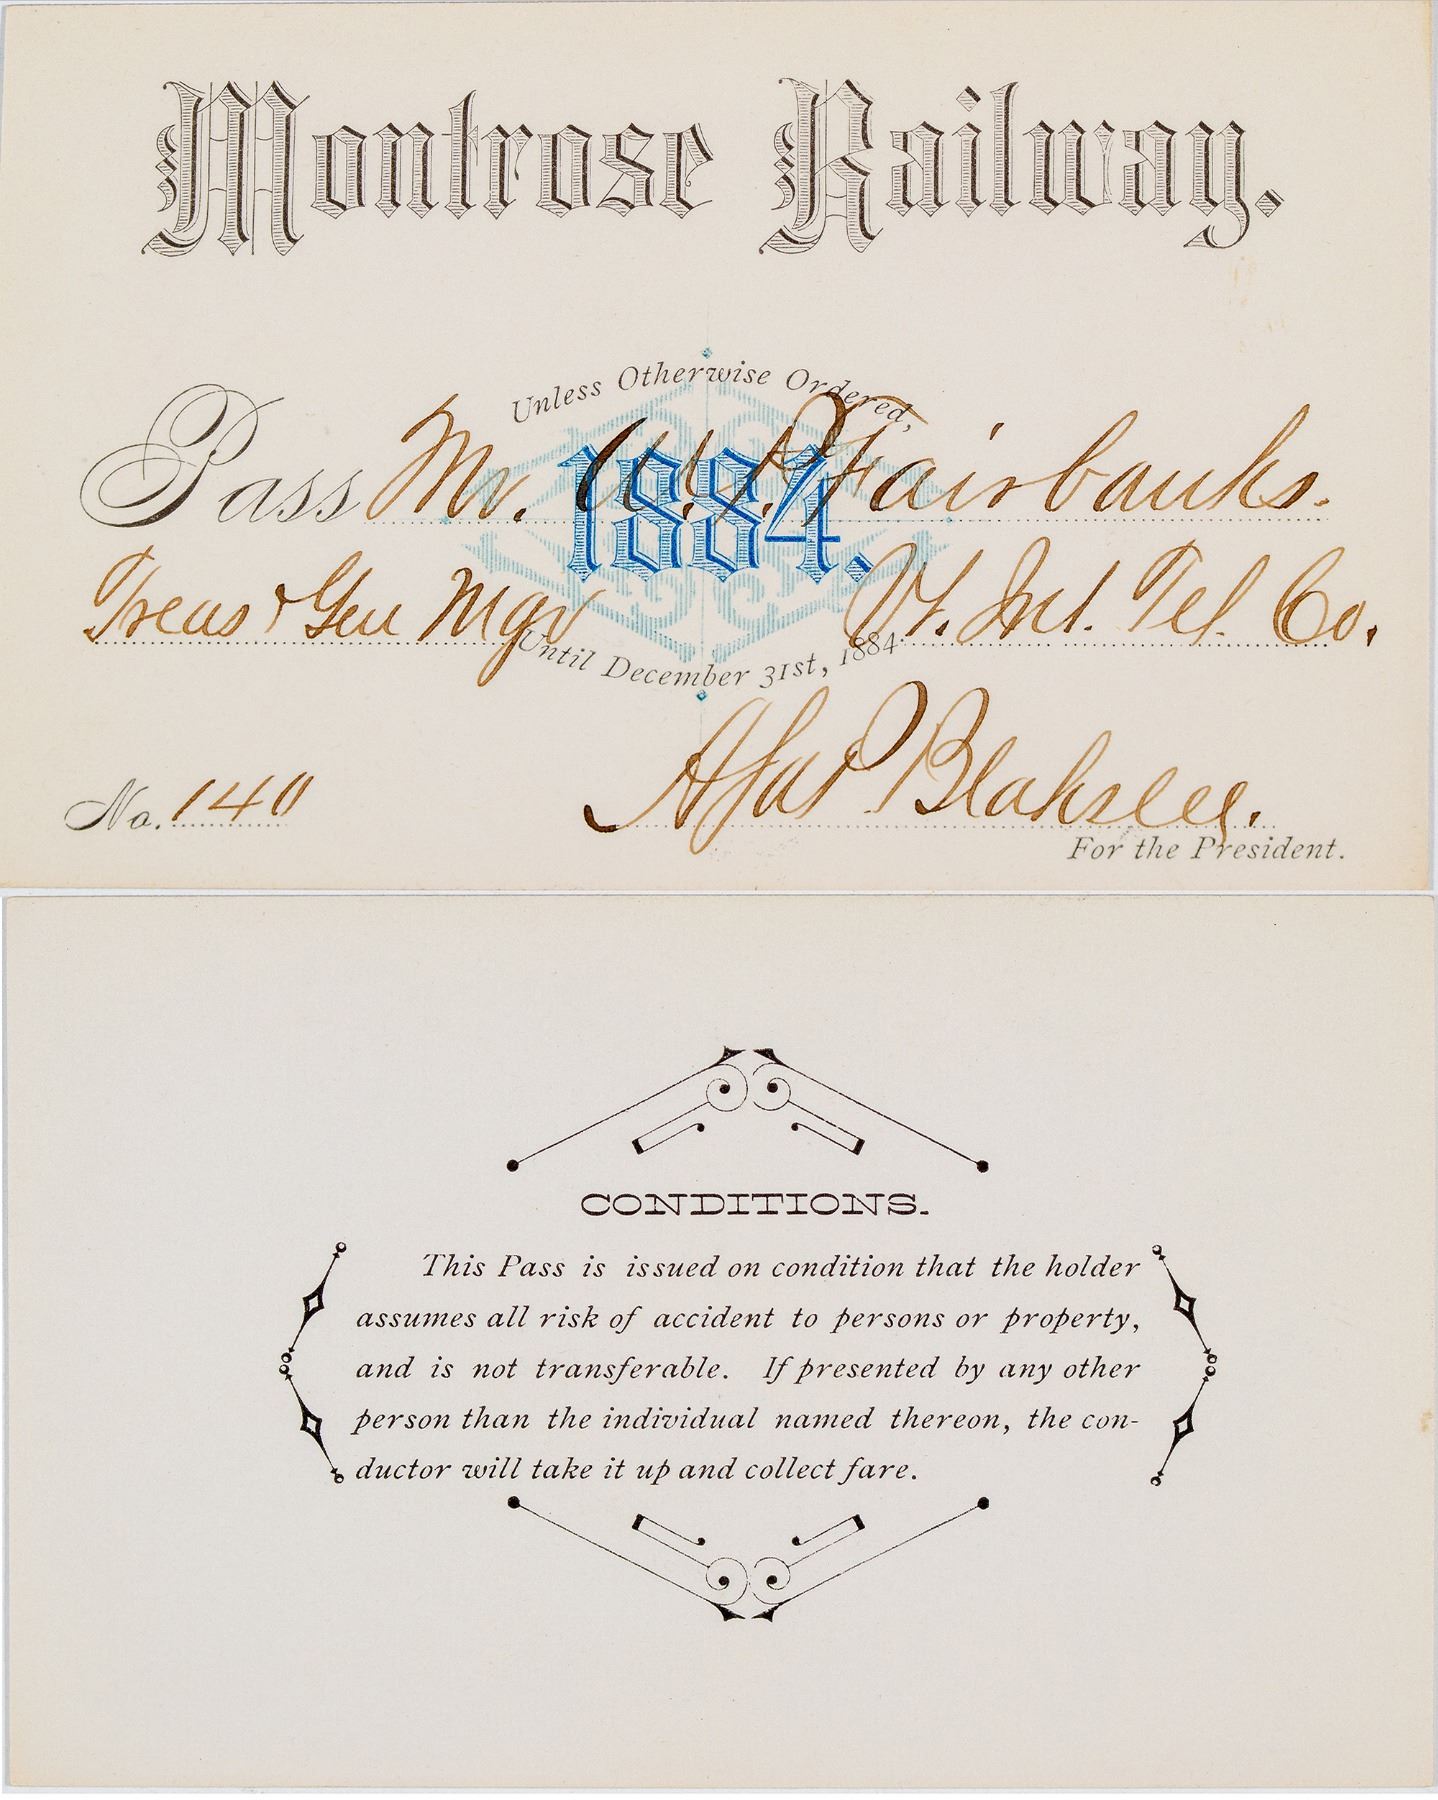 Montrose Railway.
Unless Otherwise Ordered,
Pass Mr. W. P. Fairbanks.
1884.
Treas & Gen Mgr Vt. Int. Tel. Co.
Until December 31st, 1884
No. 140
Blakslee.
For the President.
CONDITIONS.
This Pass is issued on condition that the holder
assumes all risk of accident to persons or property,
and is not transferable. If presented by any other
person than the individual named thereon, the con-
ductor will take it up and collect fare.